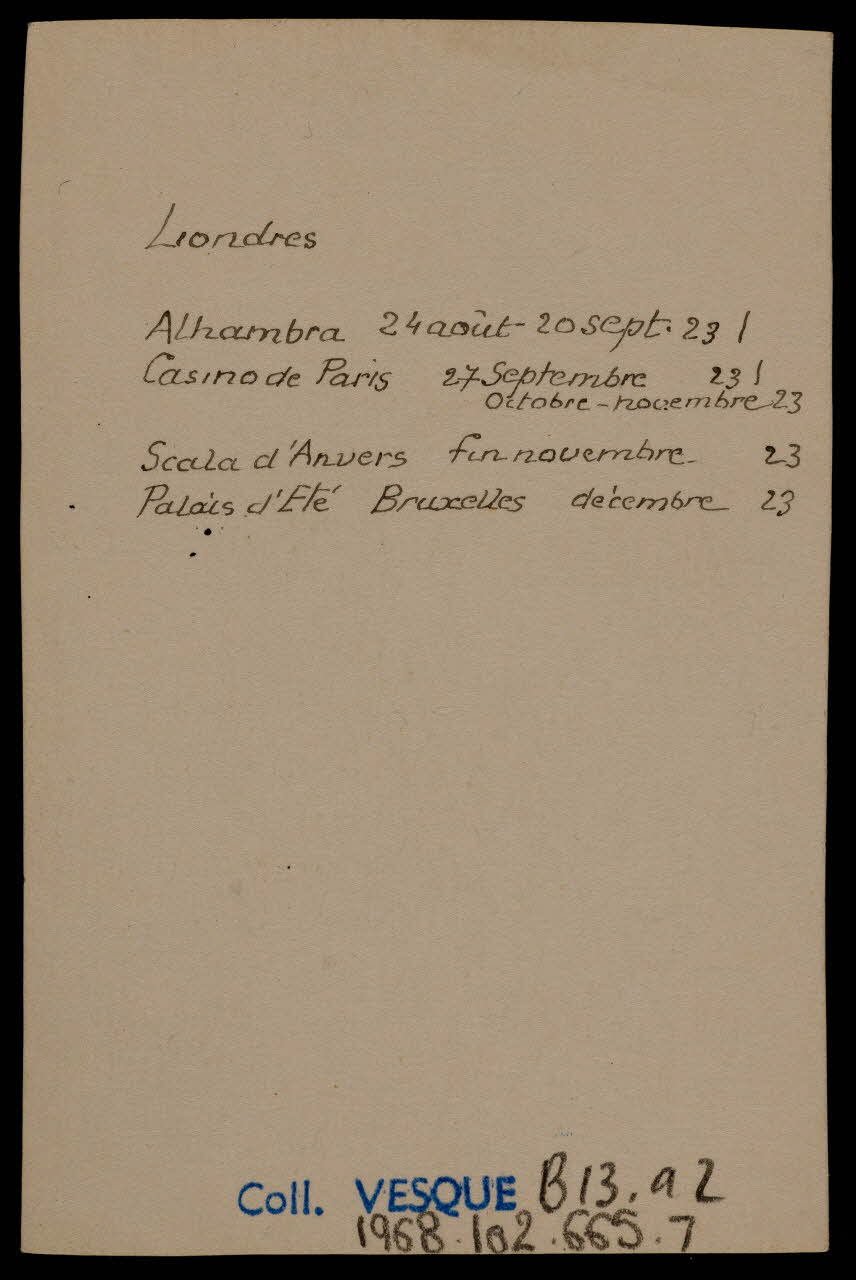 Londres
Alhambra 24 août - 20 sept. 23 /
Casino de Paris 27 Septembre 23 /
Octobre - novembre 23
Scala d'Anvers fin novembre 23
Palais d'Eté Bruxelles décembre 23
Coll. VESQUE B13.92
1968.102.665.7